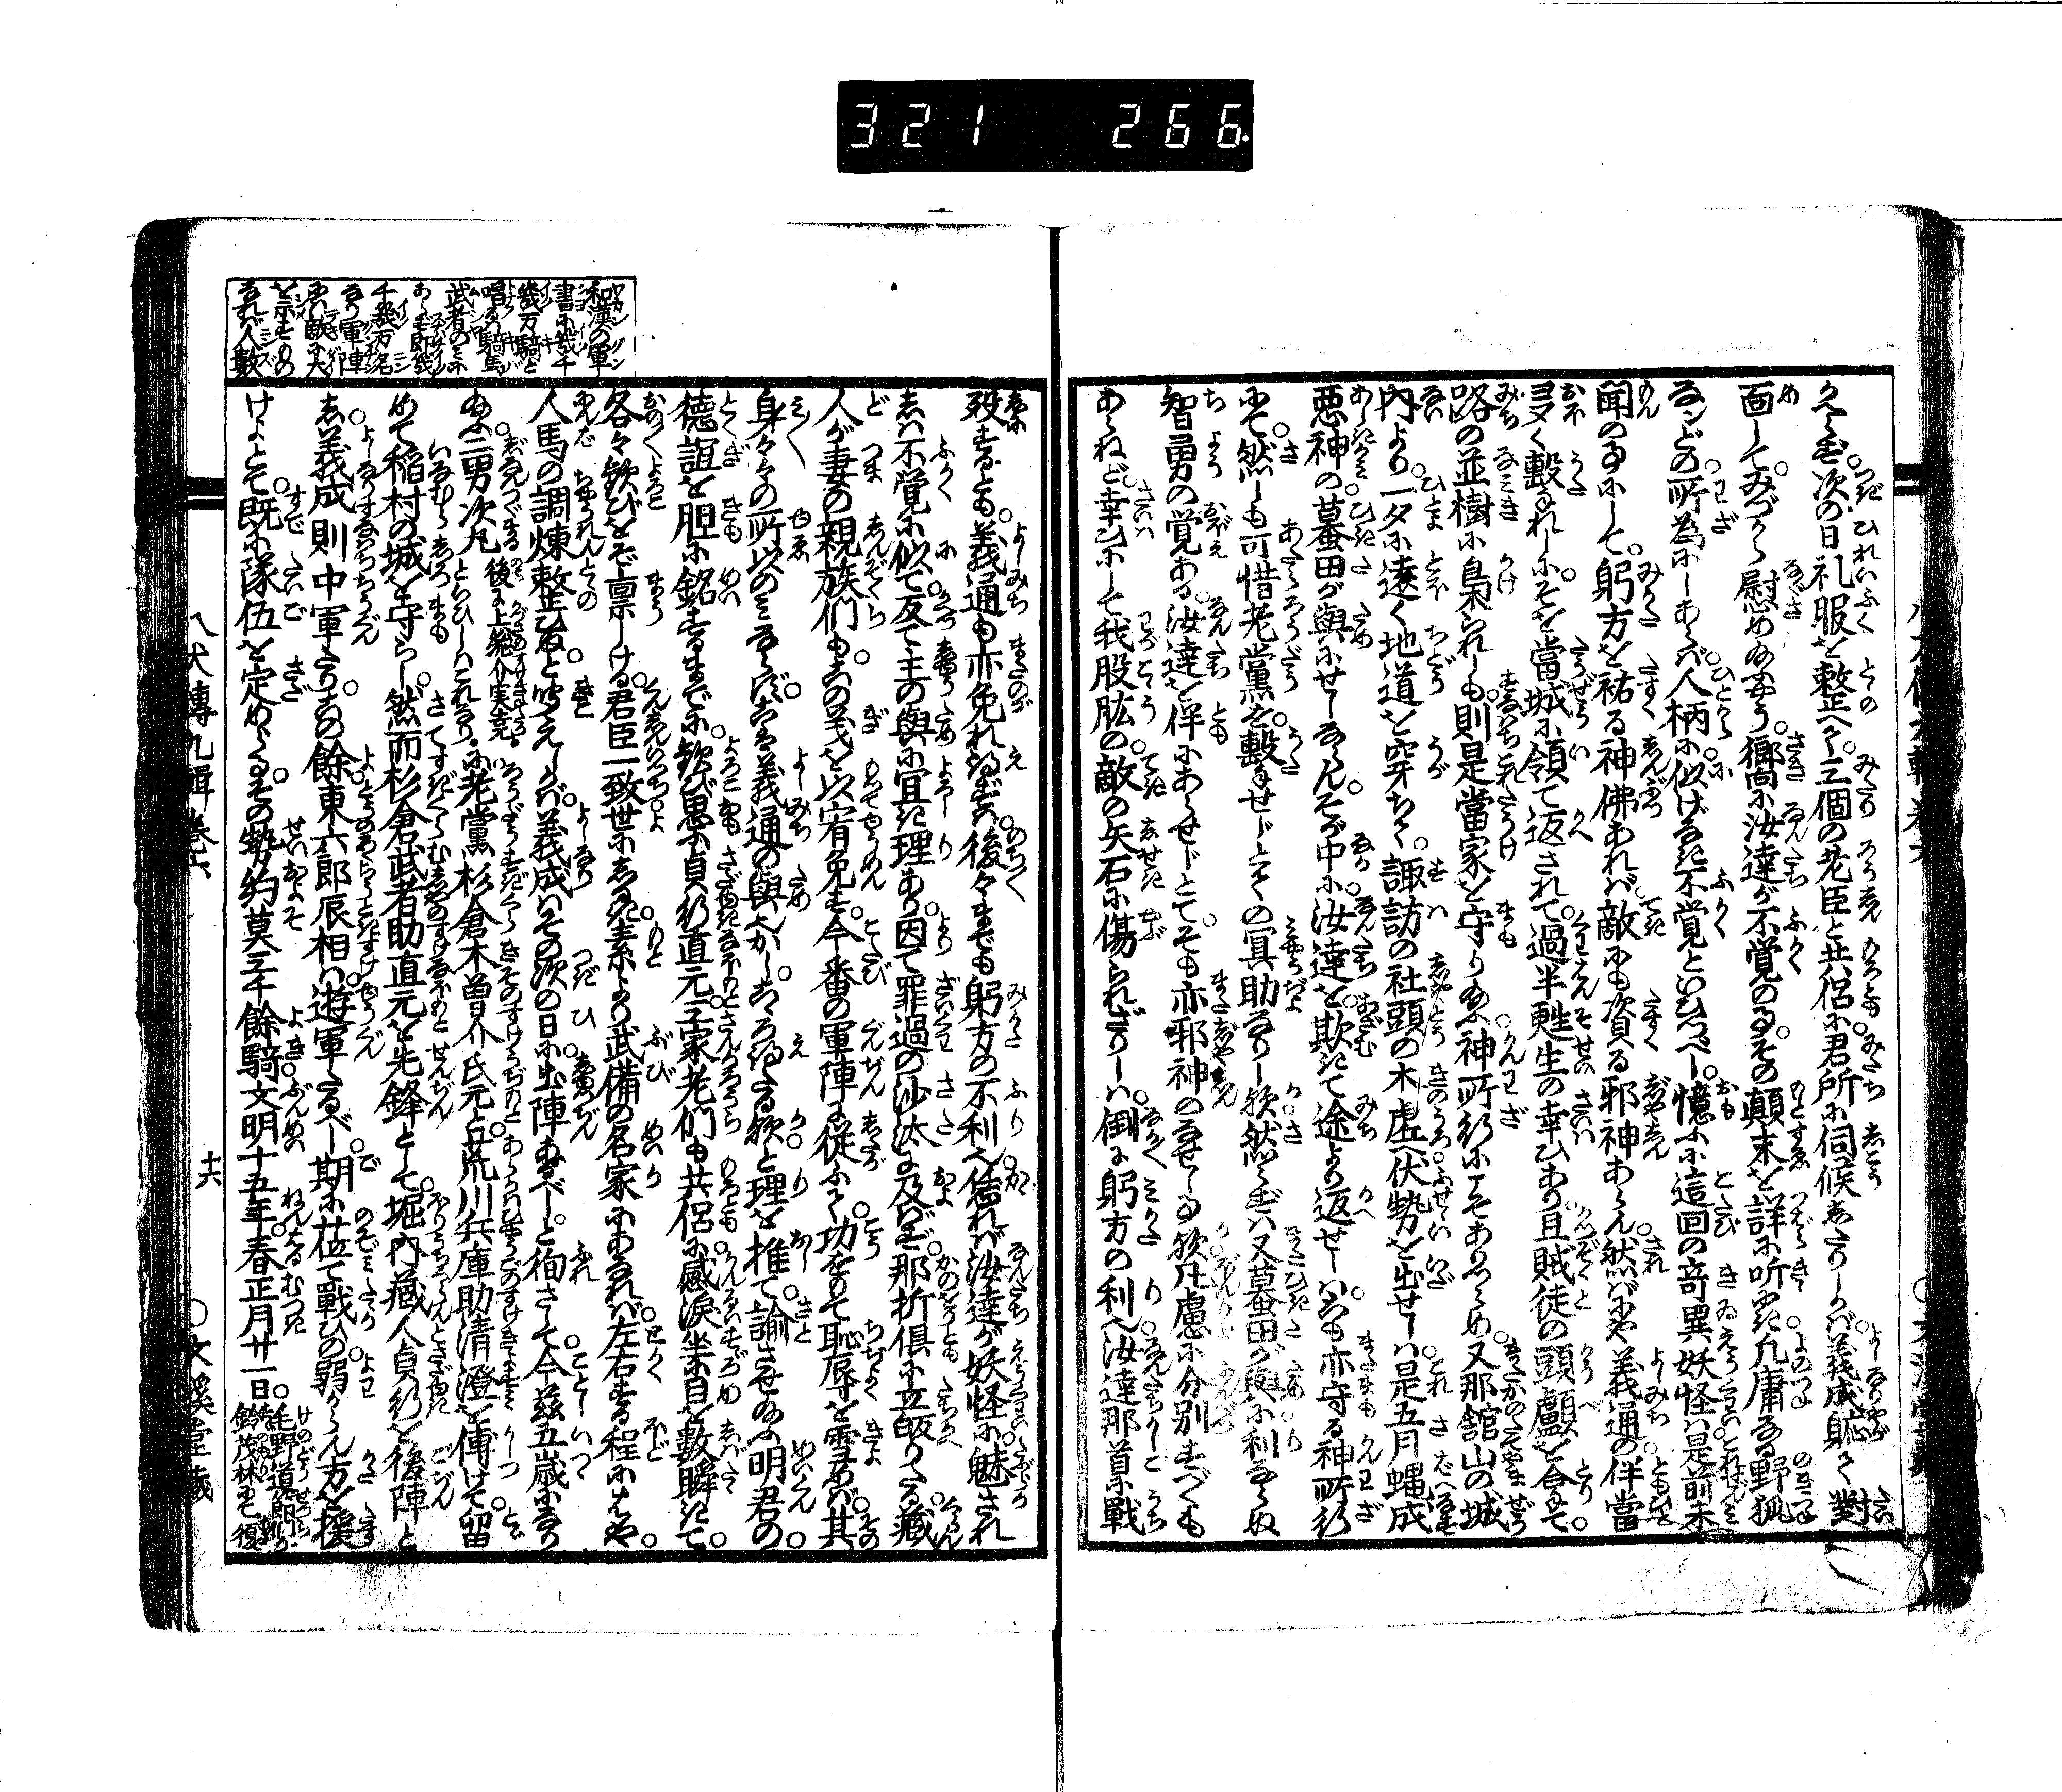 321 266
うへゑ次の日礼服を整へて三個の老臣と共侶に君所に伺候したりしかバ義成貤く對
面してみづから慰め給ふやう嚮に汝達が不覚のよしその顛末を詳に听にき凡庸なる野狐
なンどの所為にしあらバ人柄に似げなき不覚といひつべし憶ふに這回の奇異妖怪ハ是前未
聞の事にして躬方を祐る神佛あれバ敵にも資る邪神あらん然バにや義通の伴當
多く轂れしにそを當城に領て返されて過半甦生の幸ひあり且賊徒の頭顱を合して
路の並樹に梟られしも則是當家を守り給ふ神所行にこそありつらめ又那舘山の城
内より一夕に遠く地道を穿ちて諏訪の社頭の木虚へ伏勢を出せしハ是五月蝿成
悪神の蟇田が與にせしならんそが中に汝達を欺きて途より返せしハこも亦守る神所行
にて然しも可惜老黨を轂せじとての冥助なりし欤然らずハ又蟇田が與に利ならぬ
智勇の覚ある汝達を伴にあらせじとてそも亦邪神のなせし事欤凡慮に分別すべくも
あらねど幸ひにして我股肱の敵の矢石に傷られざりしハ倒に躬方の利也汝達那首に戰
殁するとも義通も亦免れ得ずハ後々までも躬方の不利也恁れバ汝達が妖怪に魅され
しハ不覚に似て反て主の與に宜き理あり因て罪過の沙汰に及バず那折倶に立皈りたる蔵
人が妻の親族們もこの義を以宥免す今番の軍陣に従ふて功をもて恥辱を雪めバ其
身々々の所以のみならずこも義通の與なるべしこゝろ得たる欤と理を推て諭させ給ふ明君の
徳誼を胆に銘ずるまでに歓び思ふ貞行直元三家老們も共侶に感涙坐に目を數瞬きて
各々歓びをぞ稟しける君臣一致世にしるき素より武備の名家にあなれバ左右する程にはや
人馬の調煉整ひぬと聞えしかバ義成ハその次の日に出陣あるべしと徇さして今茲五歳になり
給ふ二男次丸後に上総介実尭とらひしハこれなりに老黨杉倉木曽介氏元と荒川兵庫助清澄を傅けて留
めて稲村の城を守らし然而杉倉武者助直元を先鋒として堀内蔵人貞行を後陣と
し義成則中軍たりその餘東六郎辰相ハ遊軍たるべし期に莅て戰ひの弱からん方を援
けよとて既に隊伍を定めらるその勢約莫三千餘騎文明十五年春正月廿一日毛野道節們が鈴茂林にて復
和漢の軍
書に幾千
幾万騎と
唱るハ騎馬
武者のみに
あらず即幾
千幾万名
なり軍陣
にハ敵に大
を示すもの
なれバ人數
八犬傳九輯卷六
十六
〇文溪堂藏